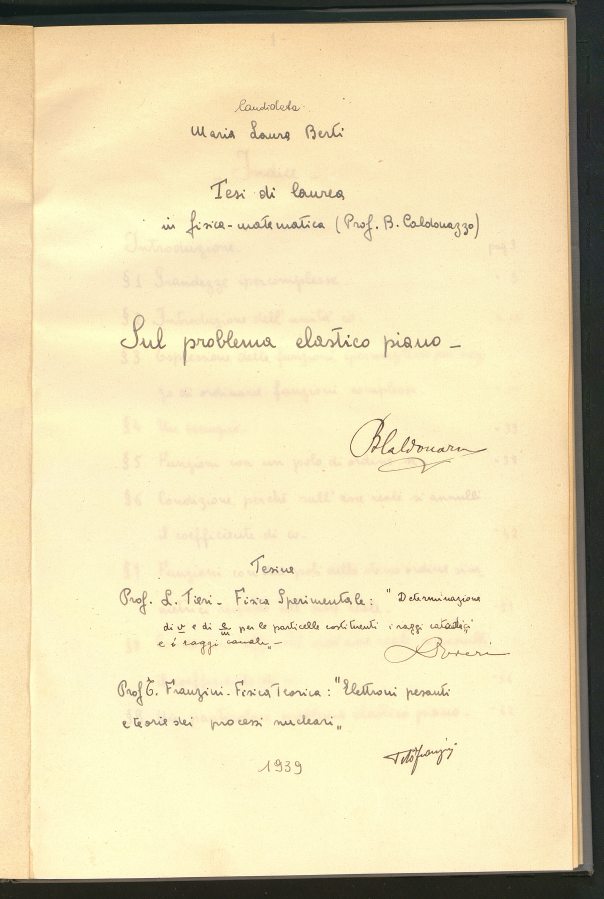 Candidata
Maria Laura Berti
Tesi di laurea
in fisica-matematica (Prof. B. Caldonazzo)
Sul problema elastico piano_
BCaldonazzo
Tesine
Prof. L. Tieri - Fisica Sperimentale: "Determinazione
di v e di e/m per le particelle costituenti i raggi catodici
e i raggi canale„_
Prof T. Franzini - Fisica Teorica: "Elettroni pesanti
e teorie dei processi nucleari„
Tito Franzini
1939